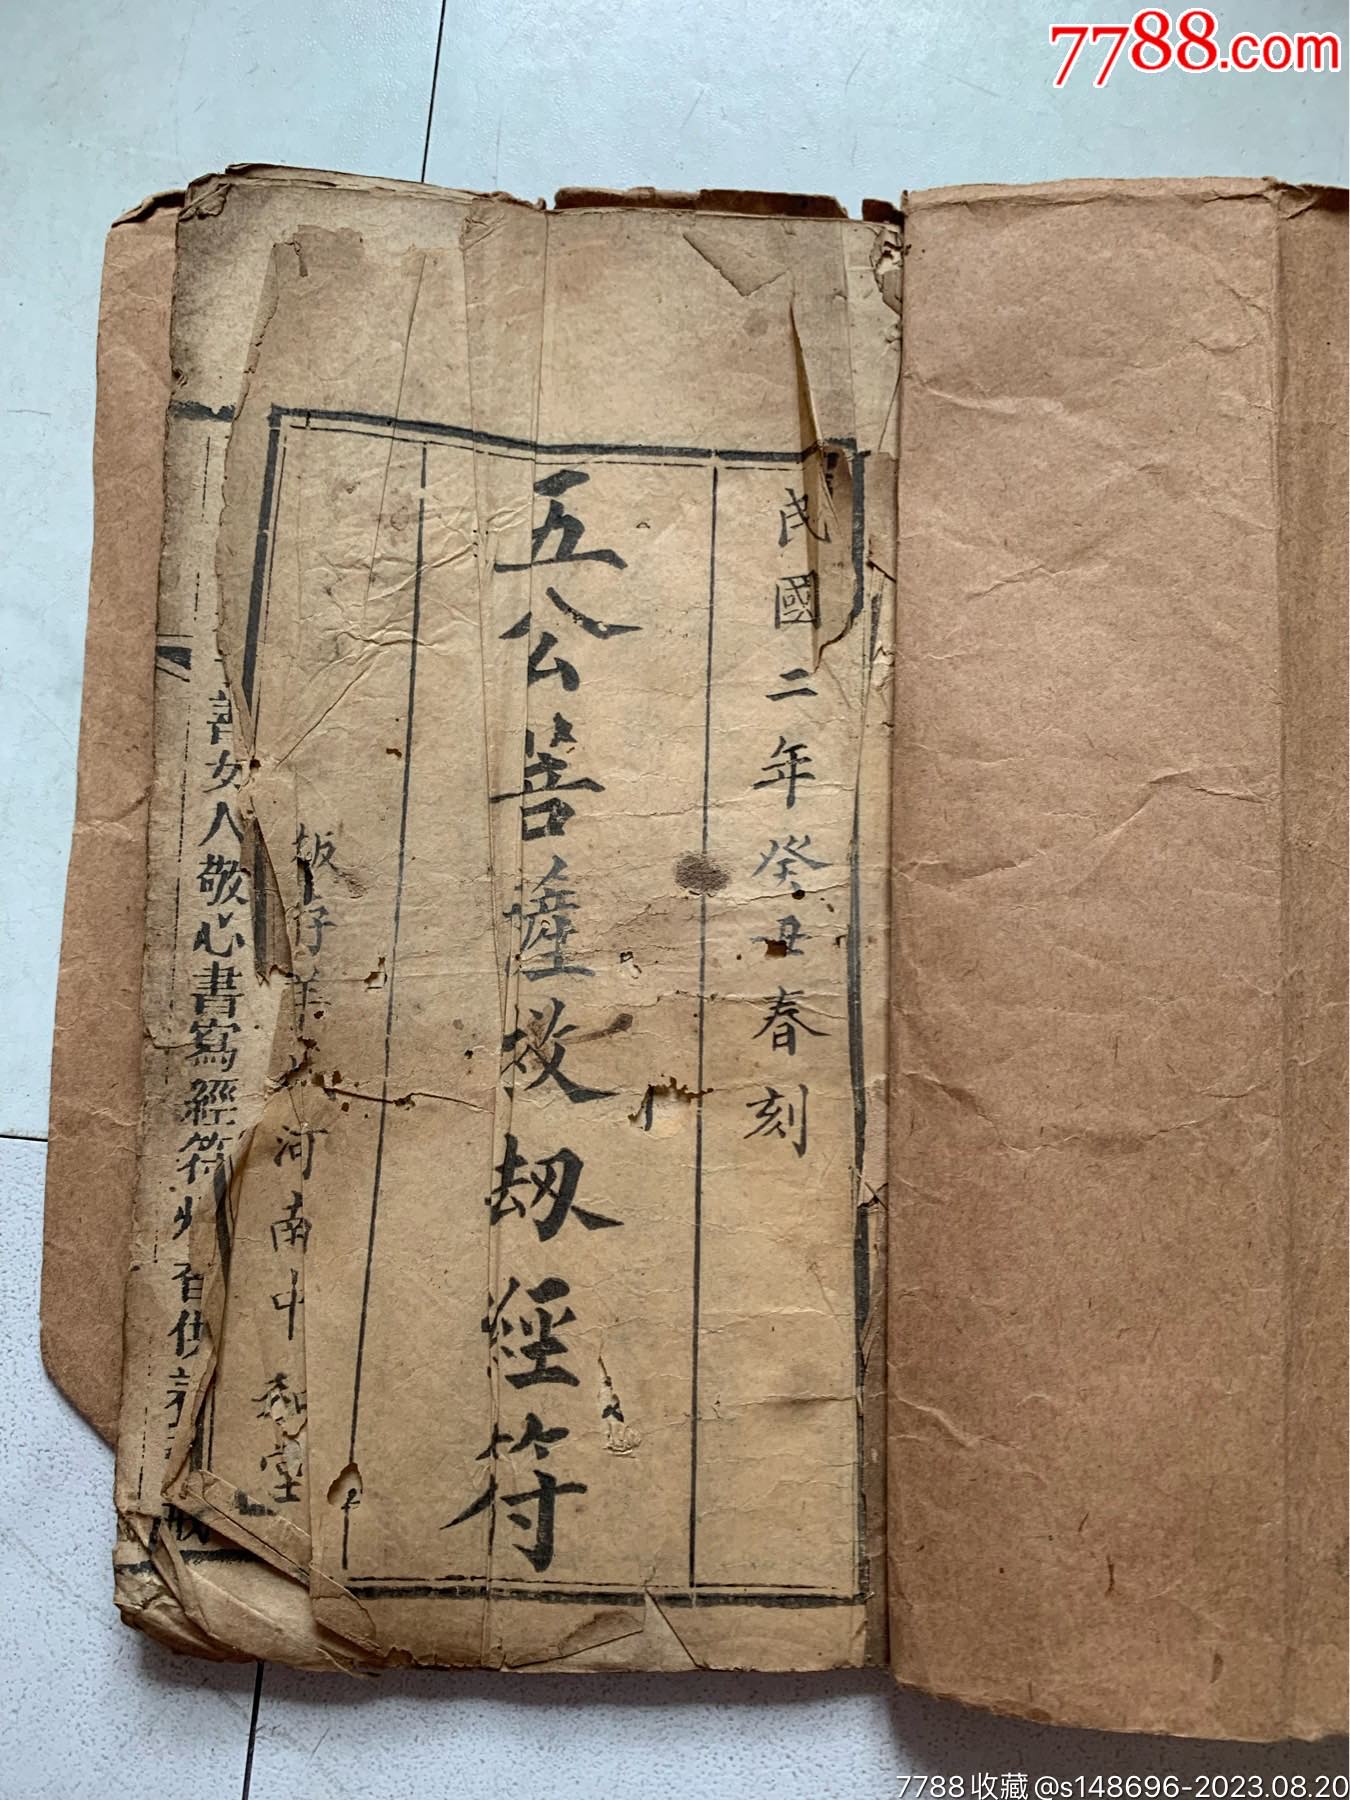 7788.com
民國二年癸丑春刻
五公菩薩救刼經符
板存羊城河南中和堂
善女人敬心書寫經符
7788收藏@s148696-2023.08.20